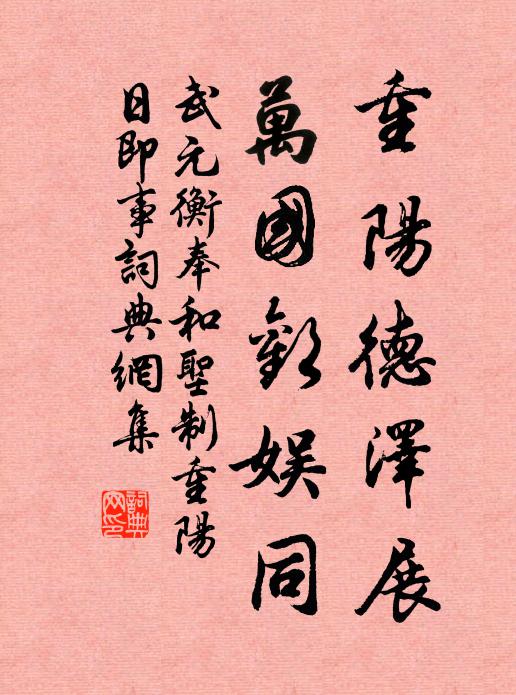 重陽德澤展
萬國歡娛同
武元衡奉和聖制重陽
日即事詞典網集
詞典
网印